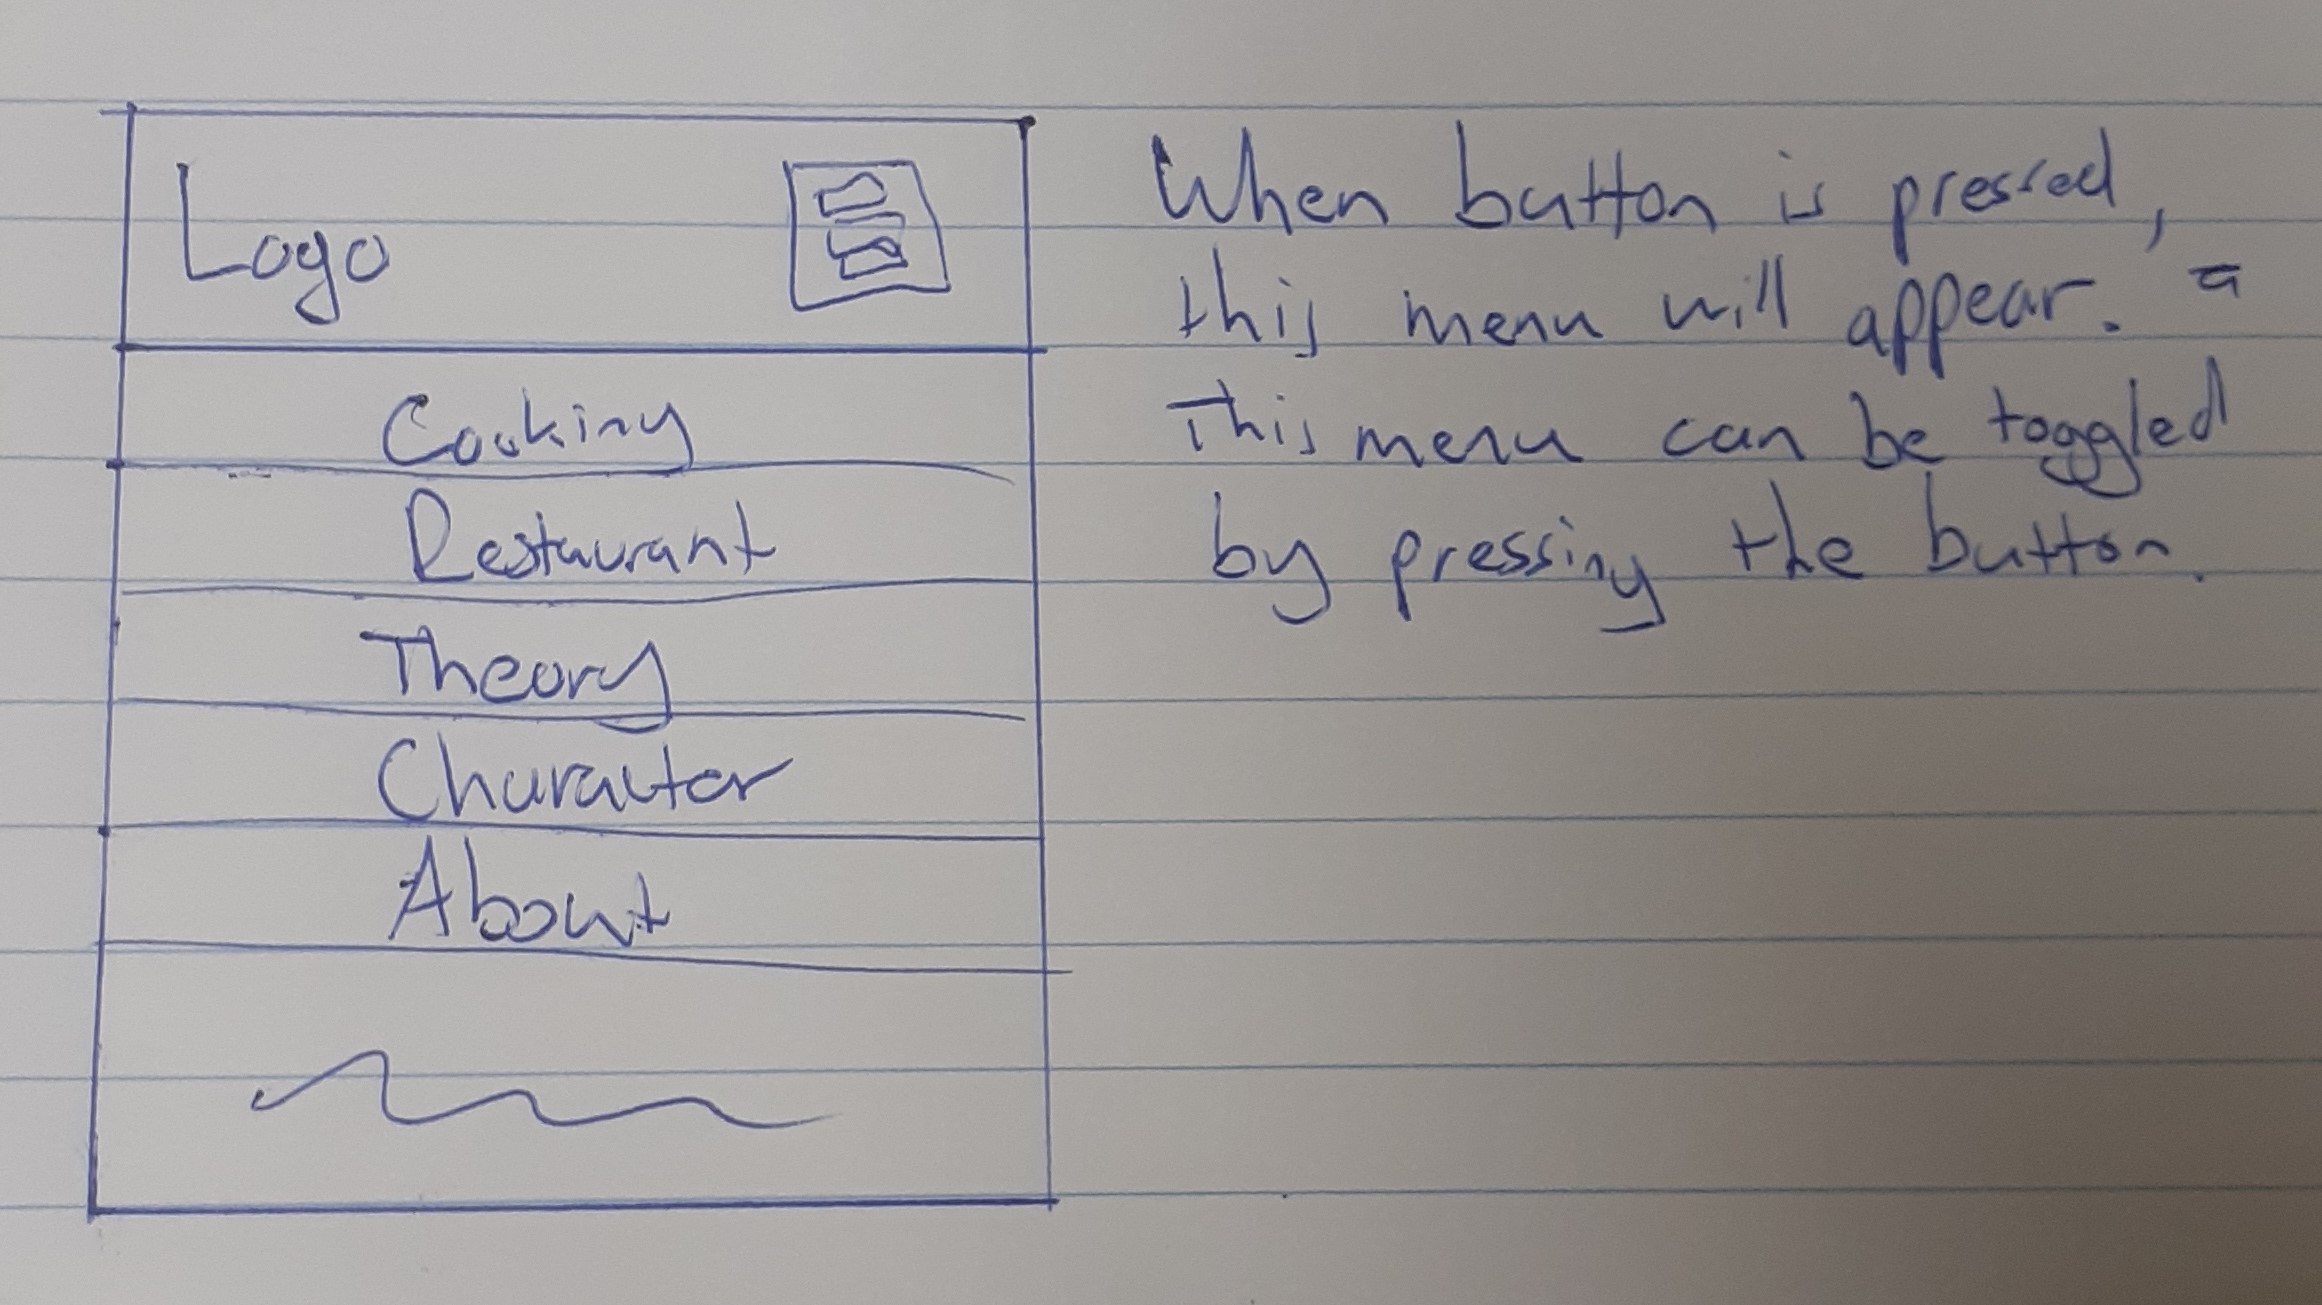 Logo
Cooking
Restaurant
Theory
Character
About
When button is pressed,
this menu will appear.
This menu can be toggled
by pressing the button.